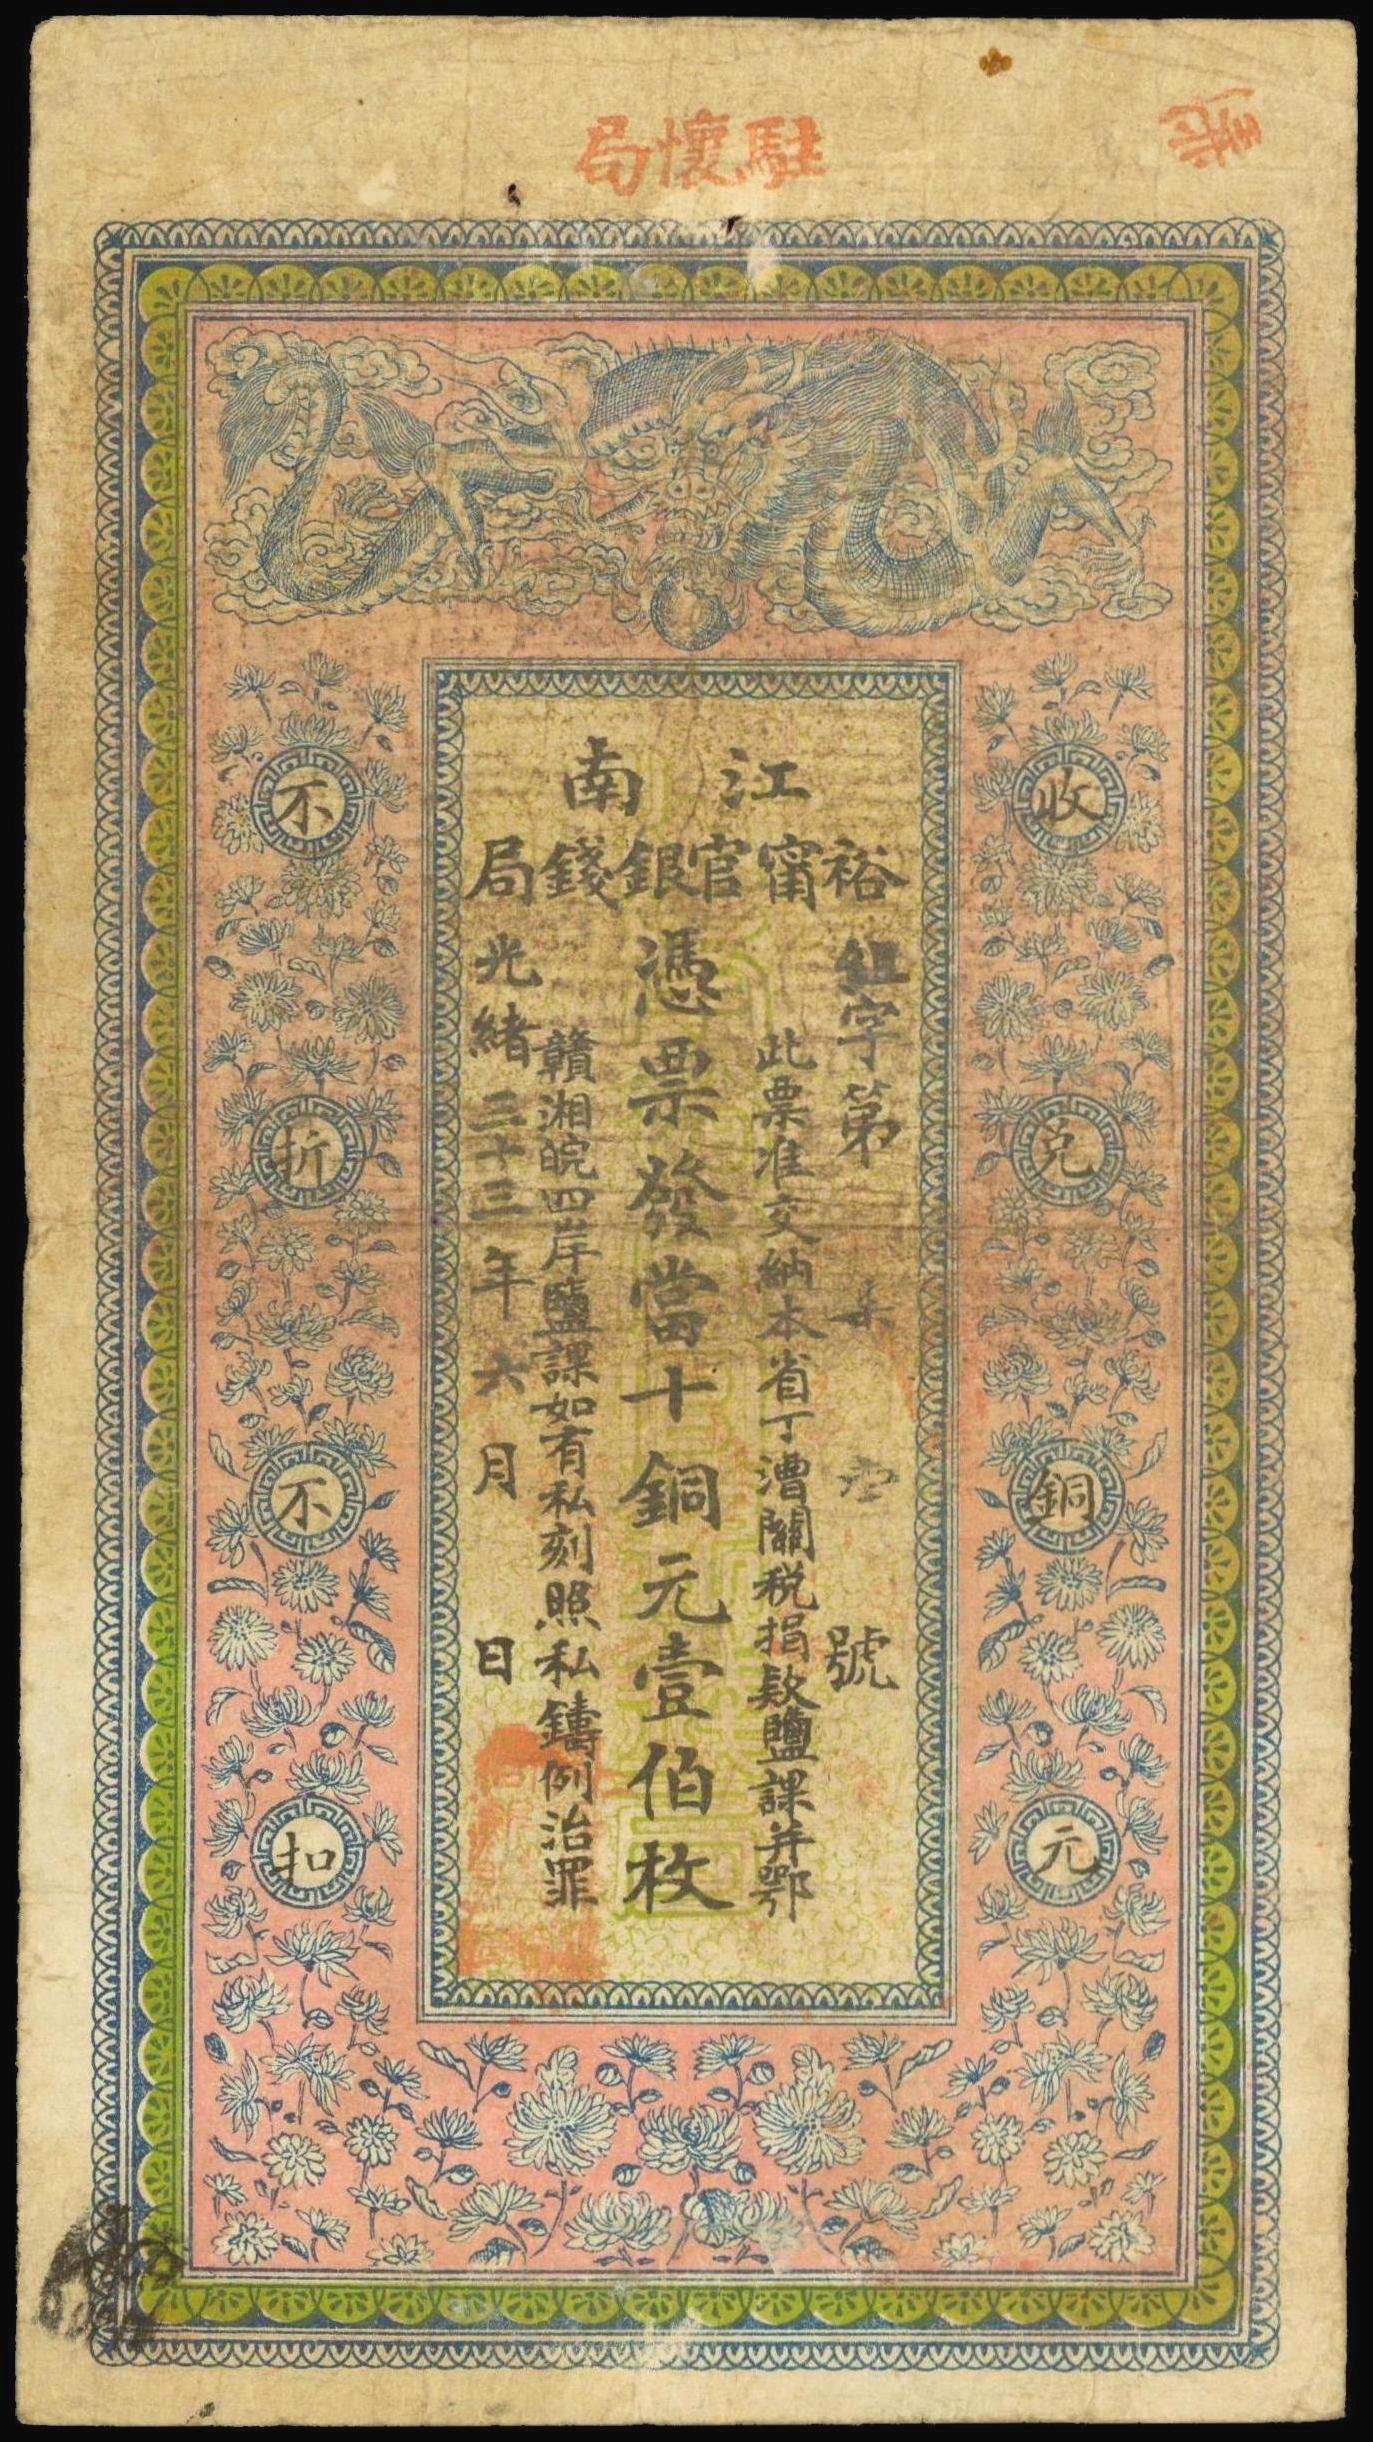 駐懷局
江南
裕甯官銀錢局
組字第 號
此票准交納本省丁漕關稅捐款鹽課并鄂
憑票發當十銅元壹伯枚
贛湘皖四岸鹽課如有私刻照私鑄例治罪
光緒三十三年六月 日
收兌銅元
不折不扣